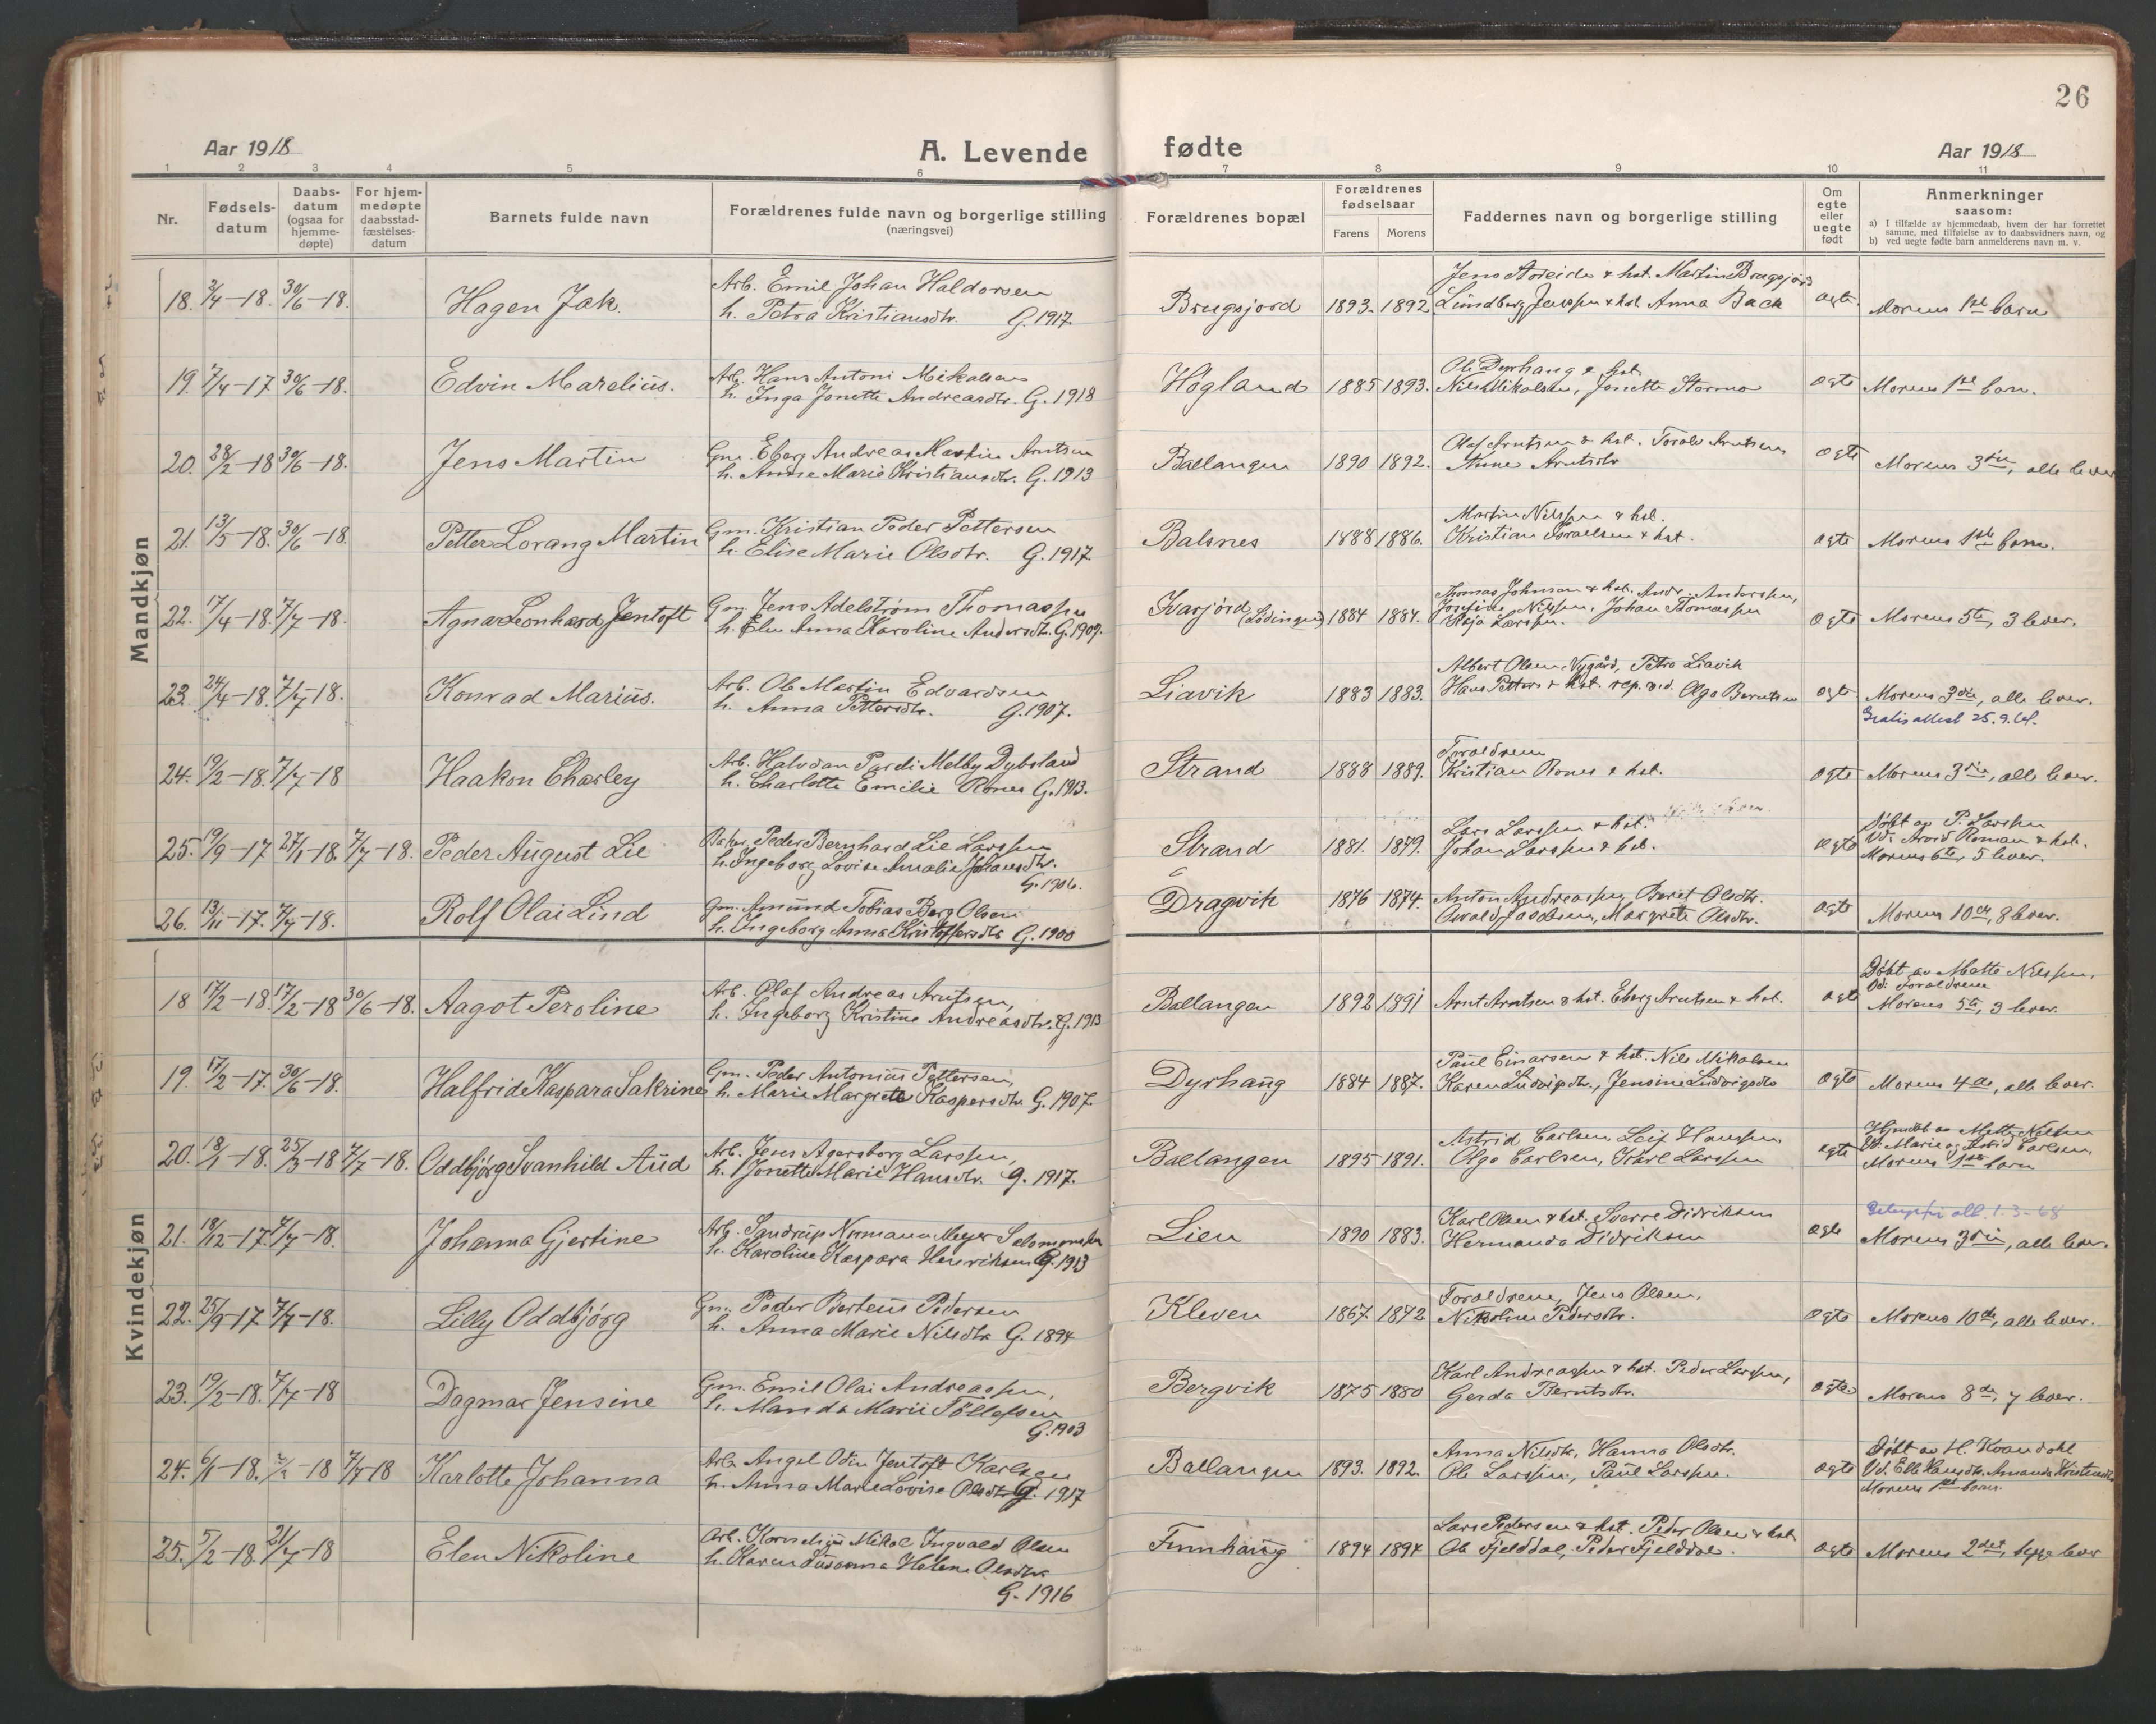 26
Aar 1918
A. Levende fødte
Aar 1918
1 2 3 4 5 6 7 8 9 10 11
Nr.
Fødsels-
datum
Daabs-
datum
(ogsaa for
hjemme-
døpte)
For hjem-
medøpte
daabsstad-
fæstelses-
datum
Barnets fulde navn
Forældrenes fulde navn og borgerlige stilling
(næringsvei)
Forældrenes bopæl
Forældrenes
fødselsaar
Farens Morens
Faddernes navn og borgerlige stilling
Om
egte
eller
uegte
født
Anmerkninger
saasom:
a) I tilfælde av hjemmedaab, hvem der har forrettet
samme, med tilføielse av to daabsvidners navn, og
b) ved uegte fødte barn anmelderens navn m. v.
Mandkjøn
18. 2/4-18. 30/6-18.
Hagen Jak.
Arb. Emil Johan Haldorsen
h. Petra Kristiansdtr. G. 1917
Brugsjord 1893. 1892
Jens & hst. Martin Brugsjord
Lundberg Jenssen & hst Anna Back
egte. Morens 1ste barn
19. 7/4-17 30/6-18.
Edvin Marelius.
Arb. Hans Antoni Mikalsen
h. Inga Jonette Andreasdtr. G. 1918
Høgland 1885 1893.
Ole Dyrhaug & hst.
Nils Mikalsen, Jonette Stormo
egte Morens 1ste barn.
20. 28/2-18 30/6-18.
Jens Martin
Gm. Eberg Andreas Martin Arntsen
h. Anne Marie Kristiansdtr. G. 1913
Ballangen 1890 1892.
Olaf Arntsen & hst. Torolv Arntsen
Anne Arntsdtr
egte Morens 3die, alle lever
21. 13/5-18. 30/6-18.
Petter Lorang Martin
Gm. Kristian Peder Pettersen
h. Elise Marie Olsdtr. G. 1917
Balsnes 1888 1886.
Martin Nilssen & hst.
Kristian Israelsen & hst.
egte Morens 1ste barn.
22. 17/4-18. 7/7-18.
Agnar Leonhard Jentoft
Gm. Jens Adelstrøm Thomassen
h. Elen Anna Karoline Andersdtr. G. 1909.
Ivarjord (Lødingen) 1884 1884.
Thomas Johnsen & hst. Andr. Anderssen,
Josefine Nilssen, Johan Thomassen
Kaja Larssen.
egte Morens 5te, 3 lever.
23. 24/4-18. 7/7-18.
Konrad Marius.
Arb. Ole Martin Edvardsen
h. Anna Pettersdtr. G. 1907.
Liavik 1883 1883.
Albert Olsen, Nygård, Petra Liavik
Hans Petters & hst. rep. ved. Olga Berntsen
egte Morens 3die, alle lever.
Gratis attest 25.9.64.
24. 19/2-18. 7/7-18
Haakon Charley
Arb. Halvdan Pardi Melby Dybsland
h. Charlotte Emilie Rones G. 1913.
Strand 1888 1889.
Foreldrene
Kristian Rones & hst.
egte Morens 3die, alle lever.
25. 19/9-17 27/1-18. 7/7-18.
Peder August Lie
Baker Peder Bernhard Lie Larssen
h. Ingeborg Lovise Amalie Johansdtr.
G. 1906.
Strand 1881. 1879.
Lars Larssen & hst.
Johan Larssen & hst.
egte
Døbt av P. Larssen
Vd. Arvid Roman & hst.
Morens 6te, 5 lever.
26. 13/11-17. 7/7-18.
Rolf Olai Lind
Gm. Amund Tobias Berg Olsen
h. Ingeborg Anna Kristoffersdtr G. 1900
Dragvik 1876 1874.
Anton Andreassen, Beret Olsdtr.
Osvald Jacobsen, Margrete Olsdtr.
egte Morens 10de, 8 lever.
Kvindekjøn
18 17/2-18. 17/2-18 30/6-18.
Aagot Peroline
Arb. Olaf Andreas Arntsen,
h. Ingeborg Kristine Andreasdtr. G. 1913
Ballangen 1892 1891
Arnt Arntsen & hst. Eberg Arntsen & hst.
egte
Døbt av Mette Nilssen,
Vd. Foreldrene
Morens 5te, 3 lever.
19. 17/2-17. 30/6-18.
Halfride Kaspara Sakrine
Gm. Peder Antonius Pettersen,
h. Marie Margrete Kaspersdtr. G. 1907.
Dyrhaug 1884 1887.
Paul Einarsen & hst. Nils Mikalsen
Karen Ludvigsdtr., Jensine Ludvigsdtr
egte Morens 4de, alle lever.
20. 18/1-18. 25/3-18 7/7-18.
Oddbjørg Svanhild Aud
Arb. Jens Agersborg Larssen,
h. Jonette Marie Hansdtr. G. 1917.
Ballangen 1895 1891.
Astrid Carlsen, Leif Hanssen
Olga Carlsen, Karl Larssen
egte
Hjemdbt. av Mette Nilsen
Vd. Marie og Astrid Carlsen,
Morens 1ste barn
21. 18/12-17. 7/7-18.
Johanna Gjertine
Arb. Sandrup Normann Meyer Salomonsen
h. Karoline Kaspara Henriksen G. 1913
Lien 1890 1883.
Karl Olsen & hst. Sverre Didriksen
Hermanda Didriksen
egte
1.3-68
Morens 3die, alle lever.
22. 25/9-17 7/7-18.
Lilly Oddbjørg
Gm. Peder Berteus Pedersen
h. Anna Marie Nilsdtr G. 1894
Kleven 1867 1872
Foreldrene, Jens Olsen,
Nikoline Pedersdtr.
egte Morens 10de, alle lever.
23. 19/2-18. 7/7-18
Dagmar Jensine
Gm. Emil Olai Andreassen,
h. Manda Marie Tollefsen
G. 1903
Bergvik 1875 1880
Karl Andreassen & hst. Peder Larssen,
Gerda Berntsdtr.
egte Morens 8de, 7 lever.
24. 6/1-18. -18 7/7-18
Karlotte Johanna
Arb. Angel Odin Jentoft Karlsen
h. Anna Marie Lovise Olsdtr G. 1917
Ballangen 1893. 1892.
Anna Nilsdtr, Hanna Olsdtr.
Ole Larssen, Paul Larssen.
egte
Døbt av H. Kvandahl
Vd. Elle Hansdtr. Amanda Kristensdtr
Morens 1ste barn.
25. 5/2-18. 21/7-18
Elen Nikoline
Arb. Kornelius Mikal Ingvald Olsen
h. Karen Susanna Helene Olsdtr
G. 1916
Finnhaug 1894 1894
Lars Pedersen & hst. Peder Olsen & hst
Ole Fjelddal, Peder Fjelddal.
egte Morens 2det, begge lever